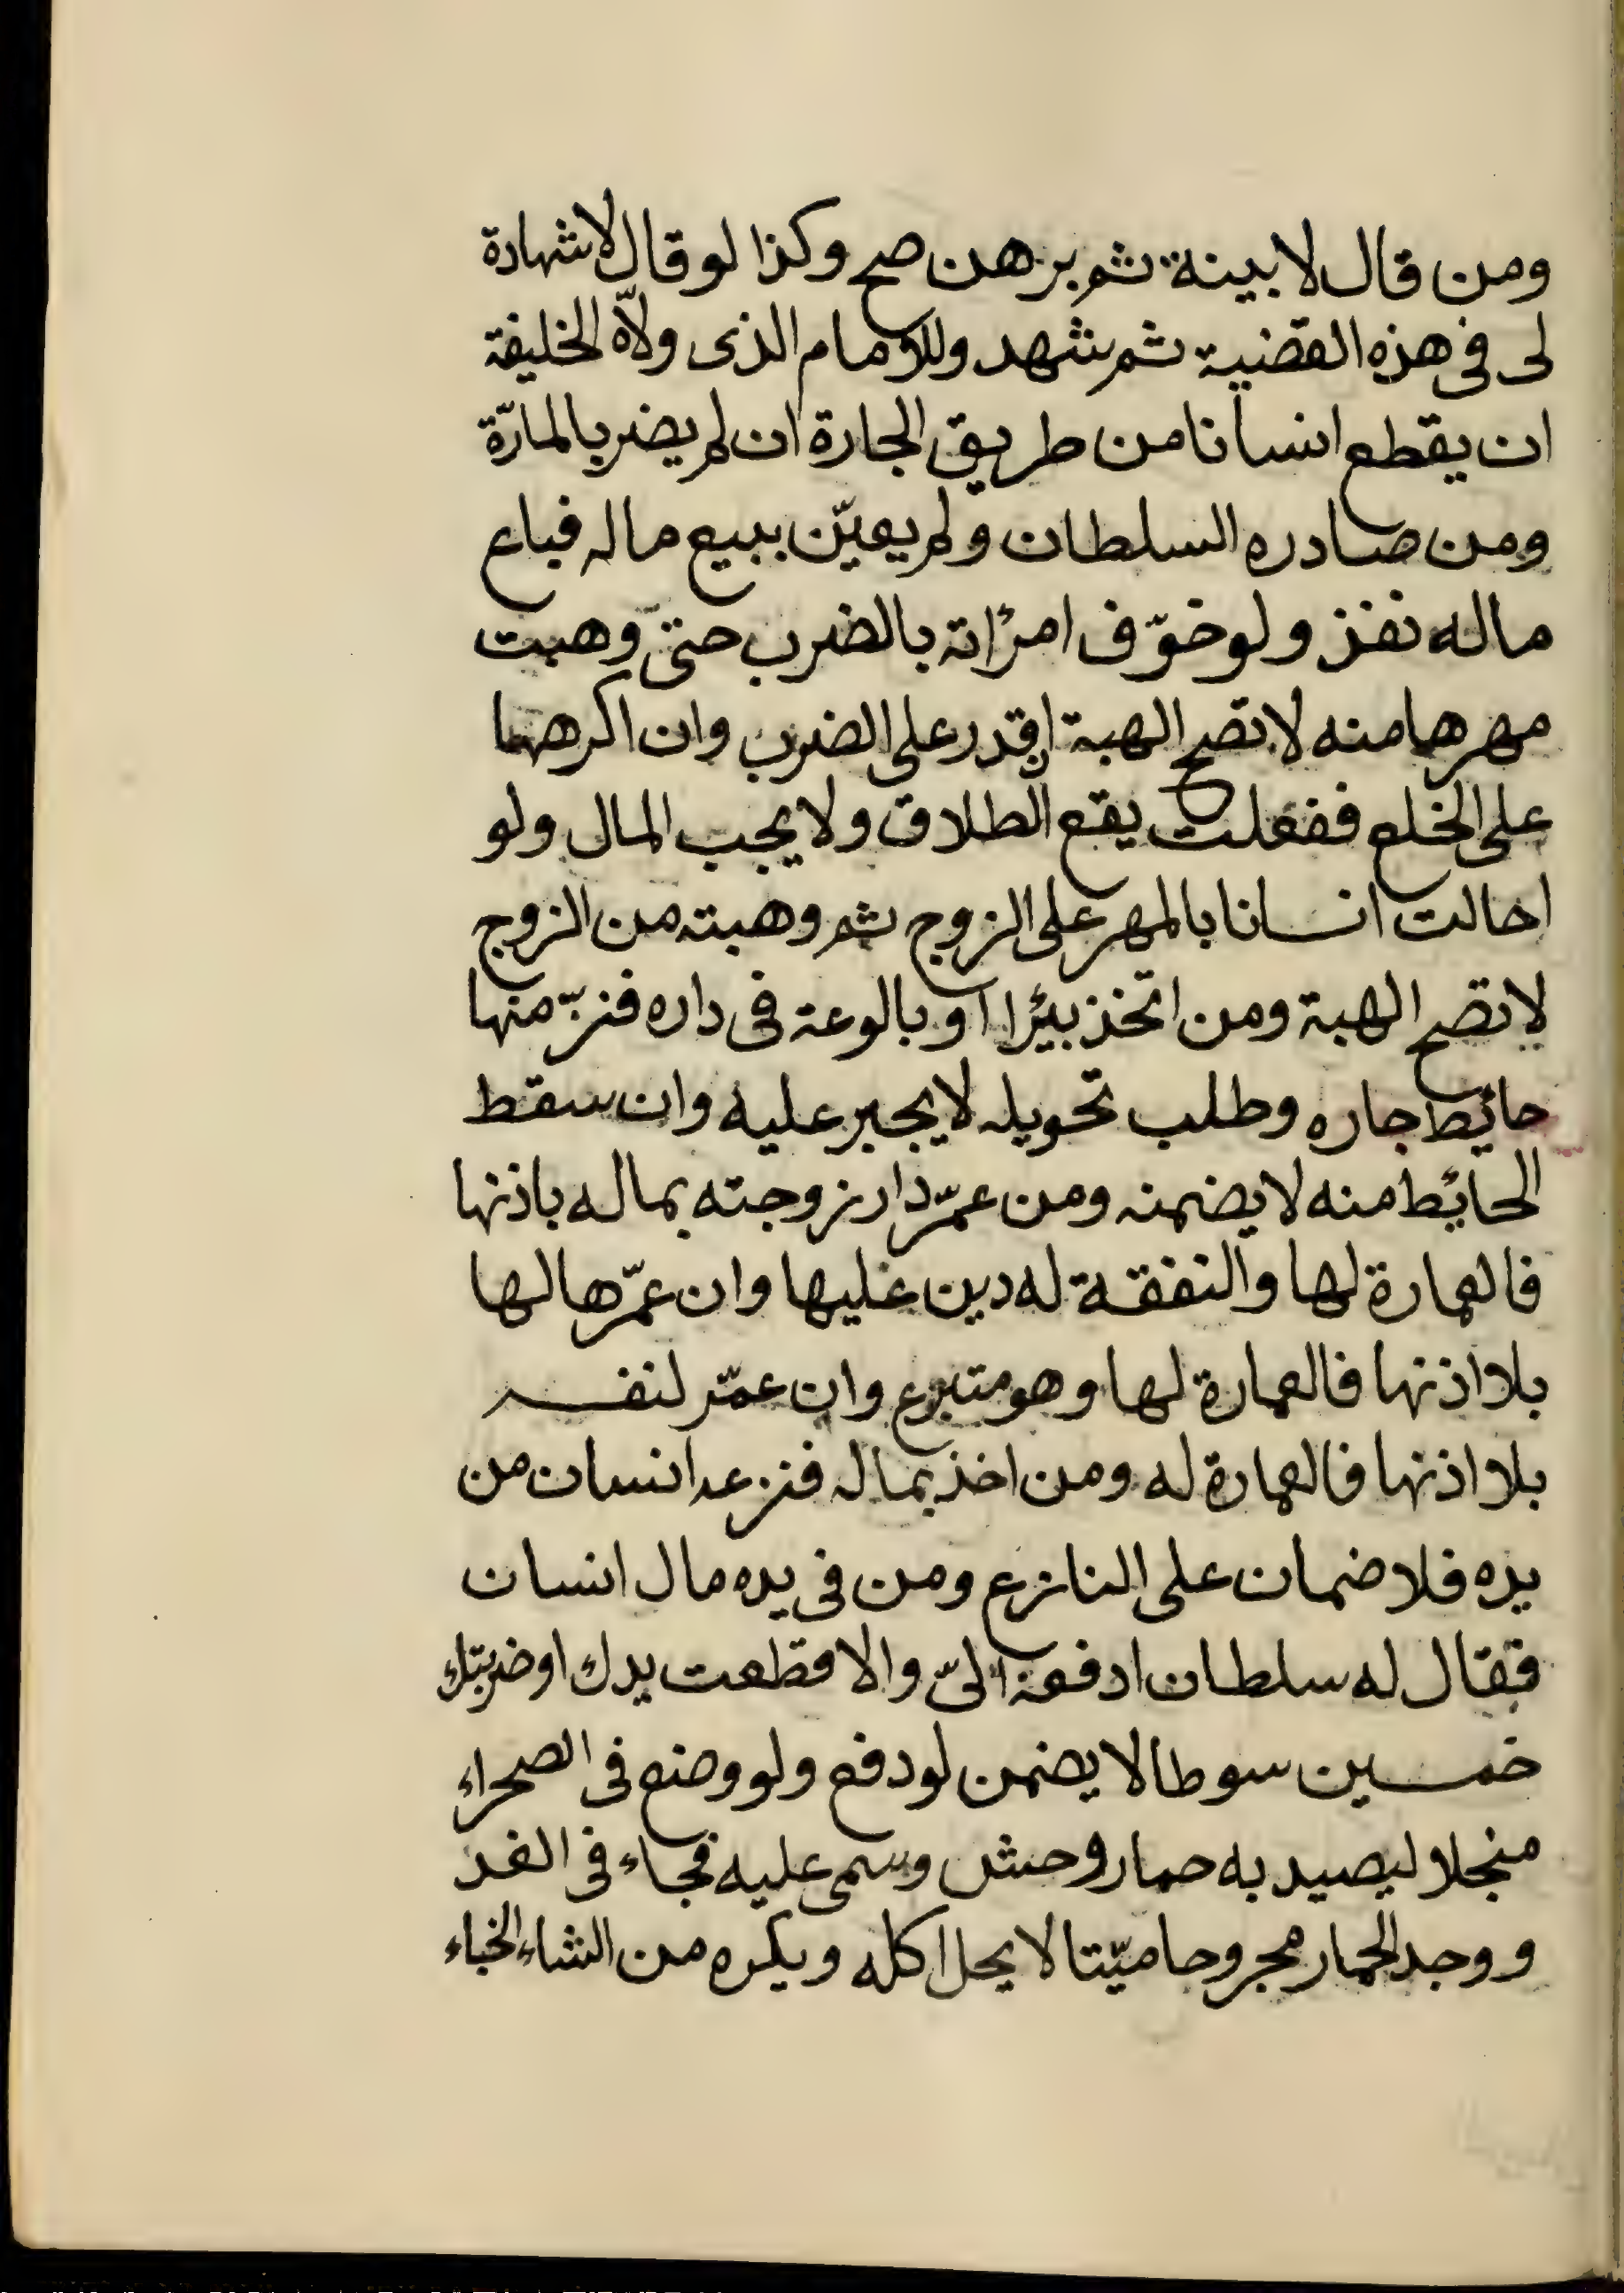 ومن قال لا بينة ثم برهن صح وكذا لو قال لا شهادة
لى فى هذه القضية ثم شهد وللامام الذى ولاّه الخليفة
ان يقطع انسانا من طريق الجارة ان لم يضر بالمارّة
ومن صادره السلطان ولم يعيّن ببيع ماله فباع
ماله نفذ ولو خوّف امرأته بالضرب حتىّ وهبت
مهرها منه لا تصح الهبة ان قدر على الضرب وان اكرهها
على الخلع ففعلت يقع الطلاق ولا يجب المال ولو
احالت انسانا بالمهر على الزوج ثم وهبته من الزوج
لا تصح الهبة ومن اتخذ بئرا او بالوعة فى داره فنزّ منها
حائط جاره وطلب تحويله لا يجبر عليه وان سقط
الحائط منه لا يضمنه ومن عمّر دار زوجته بماله باذنها
فالعمارة لها والنفقة له دين عليها وان عمّرها لها
بلا اذنها فالعمارة لها وهو متبرع وان عمّر لنفسه
بلا اذنها فالعمارة له ومن اخذ بماله فنزعه انسان من
يده فلا ضمان على النازع ومن فى يده مال انسان
فقال له سلطان ادفعه الىّ والا قطعت يدك او ضربتك
خمسين سوطا لا يضمن لو دفع ولو وضع فى الصحراء
منجلا ليصيد به حمار وحش وسمى عليه فجاء فى الغد
ووجد الحمار مجروحا ميّتا لا يحل اكله ويكره من الشاء الخباء